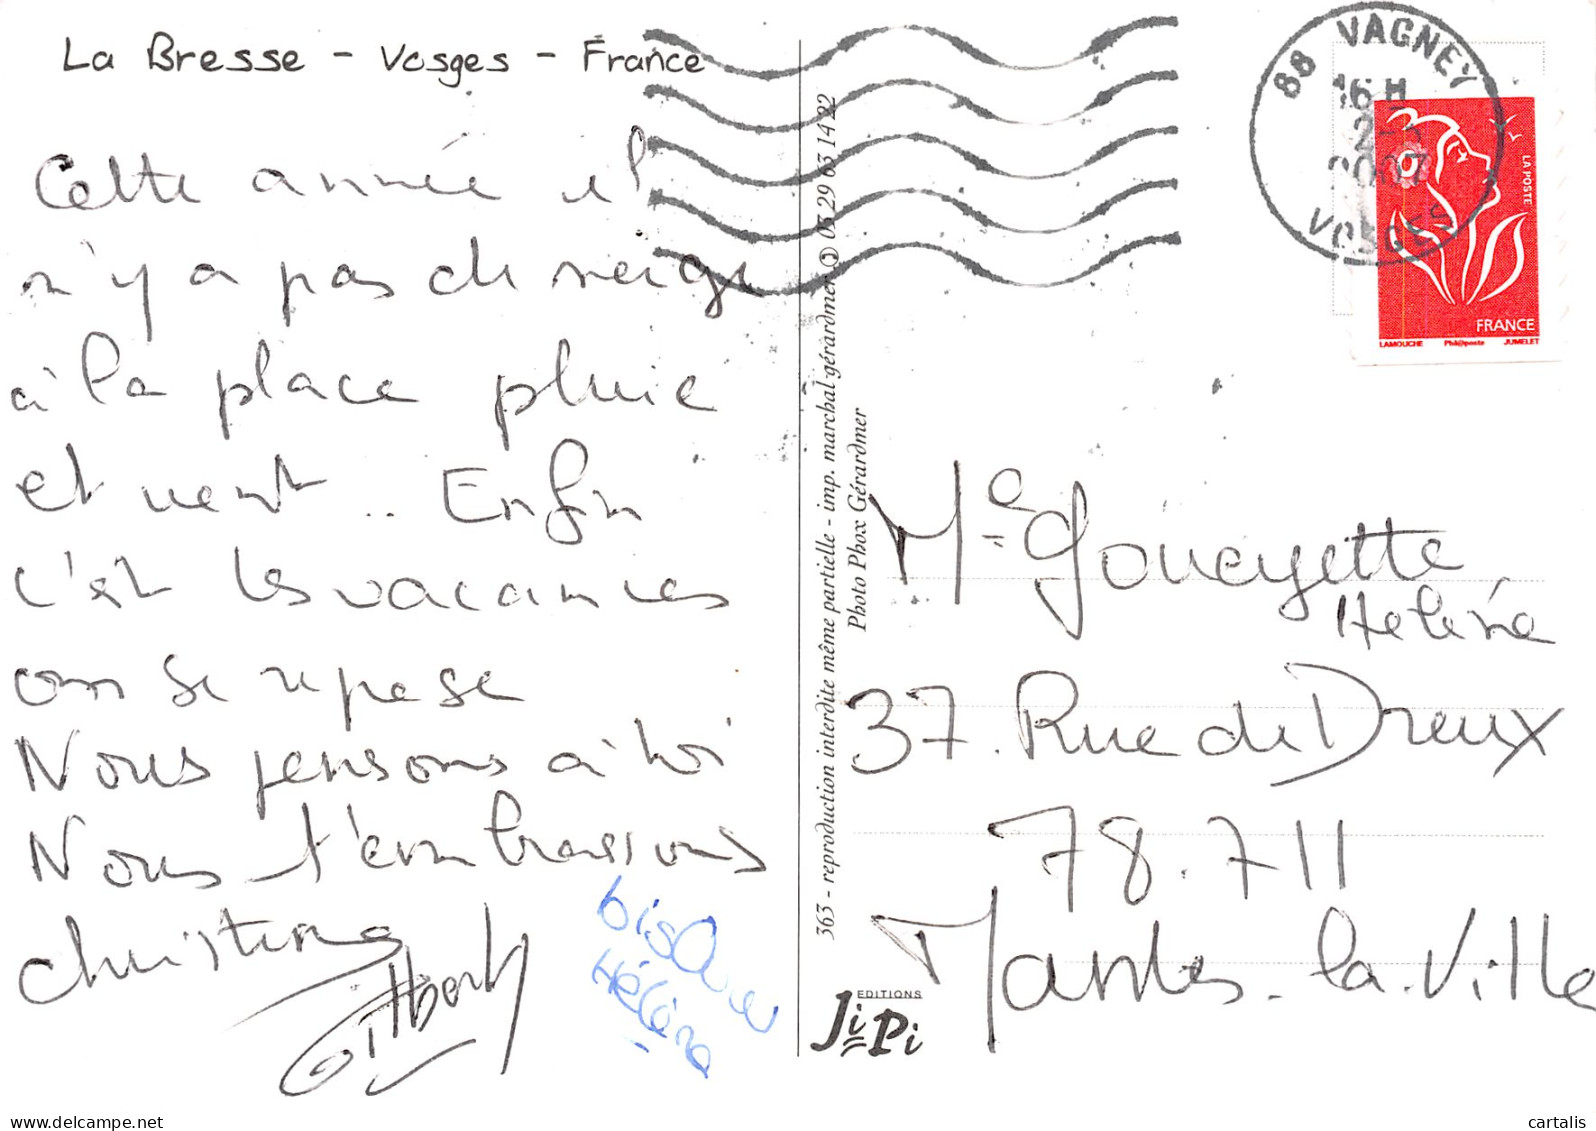 La Bresse - Vosges - France
Cette année il
n'y a pas de neige
à la place pluie
et vent .. Enfin
c'est les vacances
on se repose
Nous pensons à toi
Nous t'embrassons
Christine
Gilbert
bisou
Hélèna
363 - reproduction interdite même partielle - imp. marchal gérardmer ✆ 03 29 63 14 22
Photo Phox Gérardmer
EDITIONS
JiPi
88 VAGNEY
16 H
2007
VOSGES
LA POSTE
FRANCE
LAMOUCHE Phil@poste JUMELET
Mle Goueyette
Helène
37. Rue de Dreux
78.711
Mantes.la.Ville
cartalis
delcampe.net